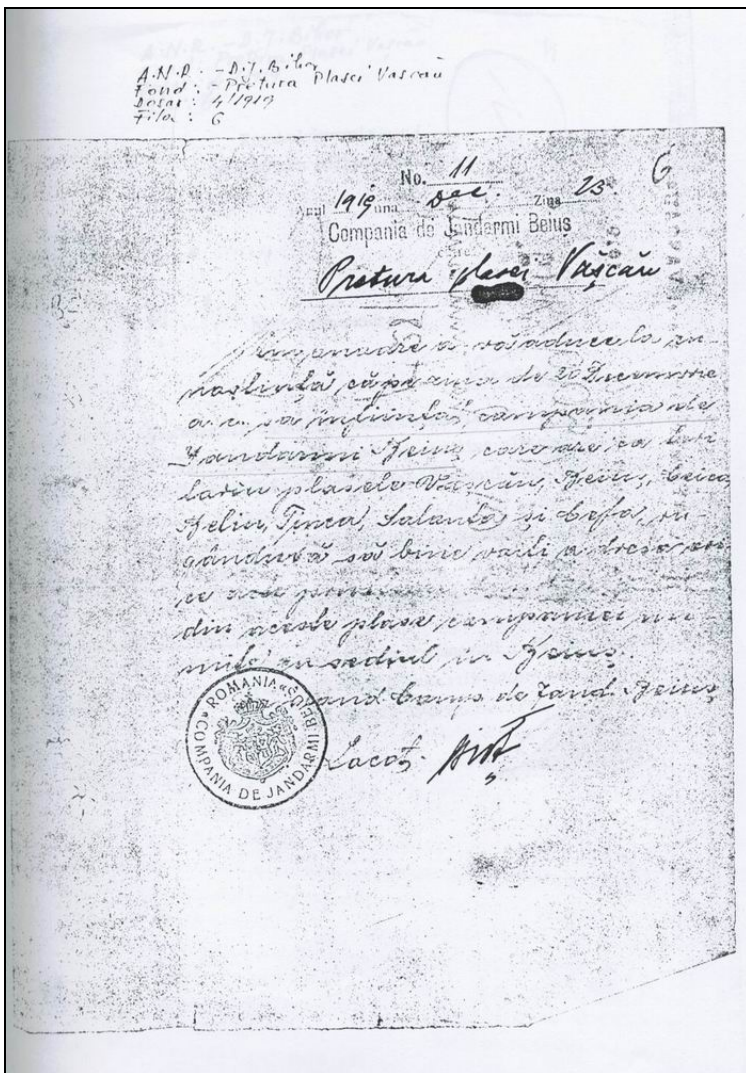 A.N.R. - D.J. Bihor
Fond: - Pretura Plasei Vascau
Dosar: 4/1919
Fila: 6
No. 11
6
Anul 1919 una Dec. Ziua 23
Compania de Jandarmi Beiuș
către
Pretura plasei Vașcău
a vă aduce la cu-
noștință că pe ziua de 20 Decemvrie
a. c. sa înființat compania de
Jandarmi Beiuș care are ca teri
toriu plasele Vașcău, Beiuș, Ceica
Beliu, Tinca, Salonta și Cefa, ru-
gânduvă să bine voiți a dresa
din aceste plase companiei nu
mite cu sediul în Beiuș.
Comp. de Jand. Beiuș
Locot.
ROMANIA
COMPANIA DE JANDARMI BEIUȘ